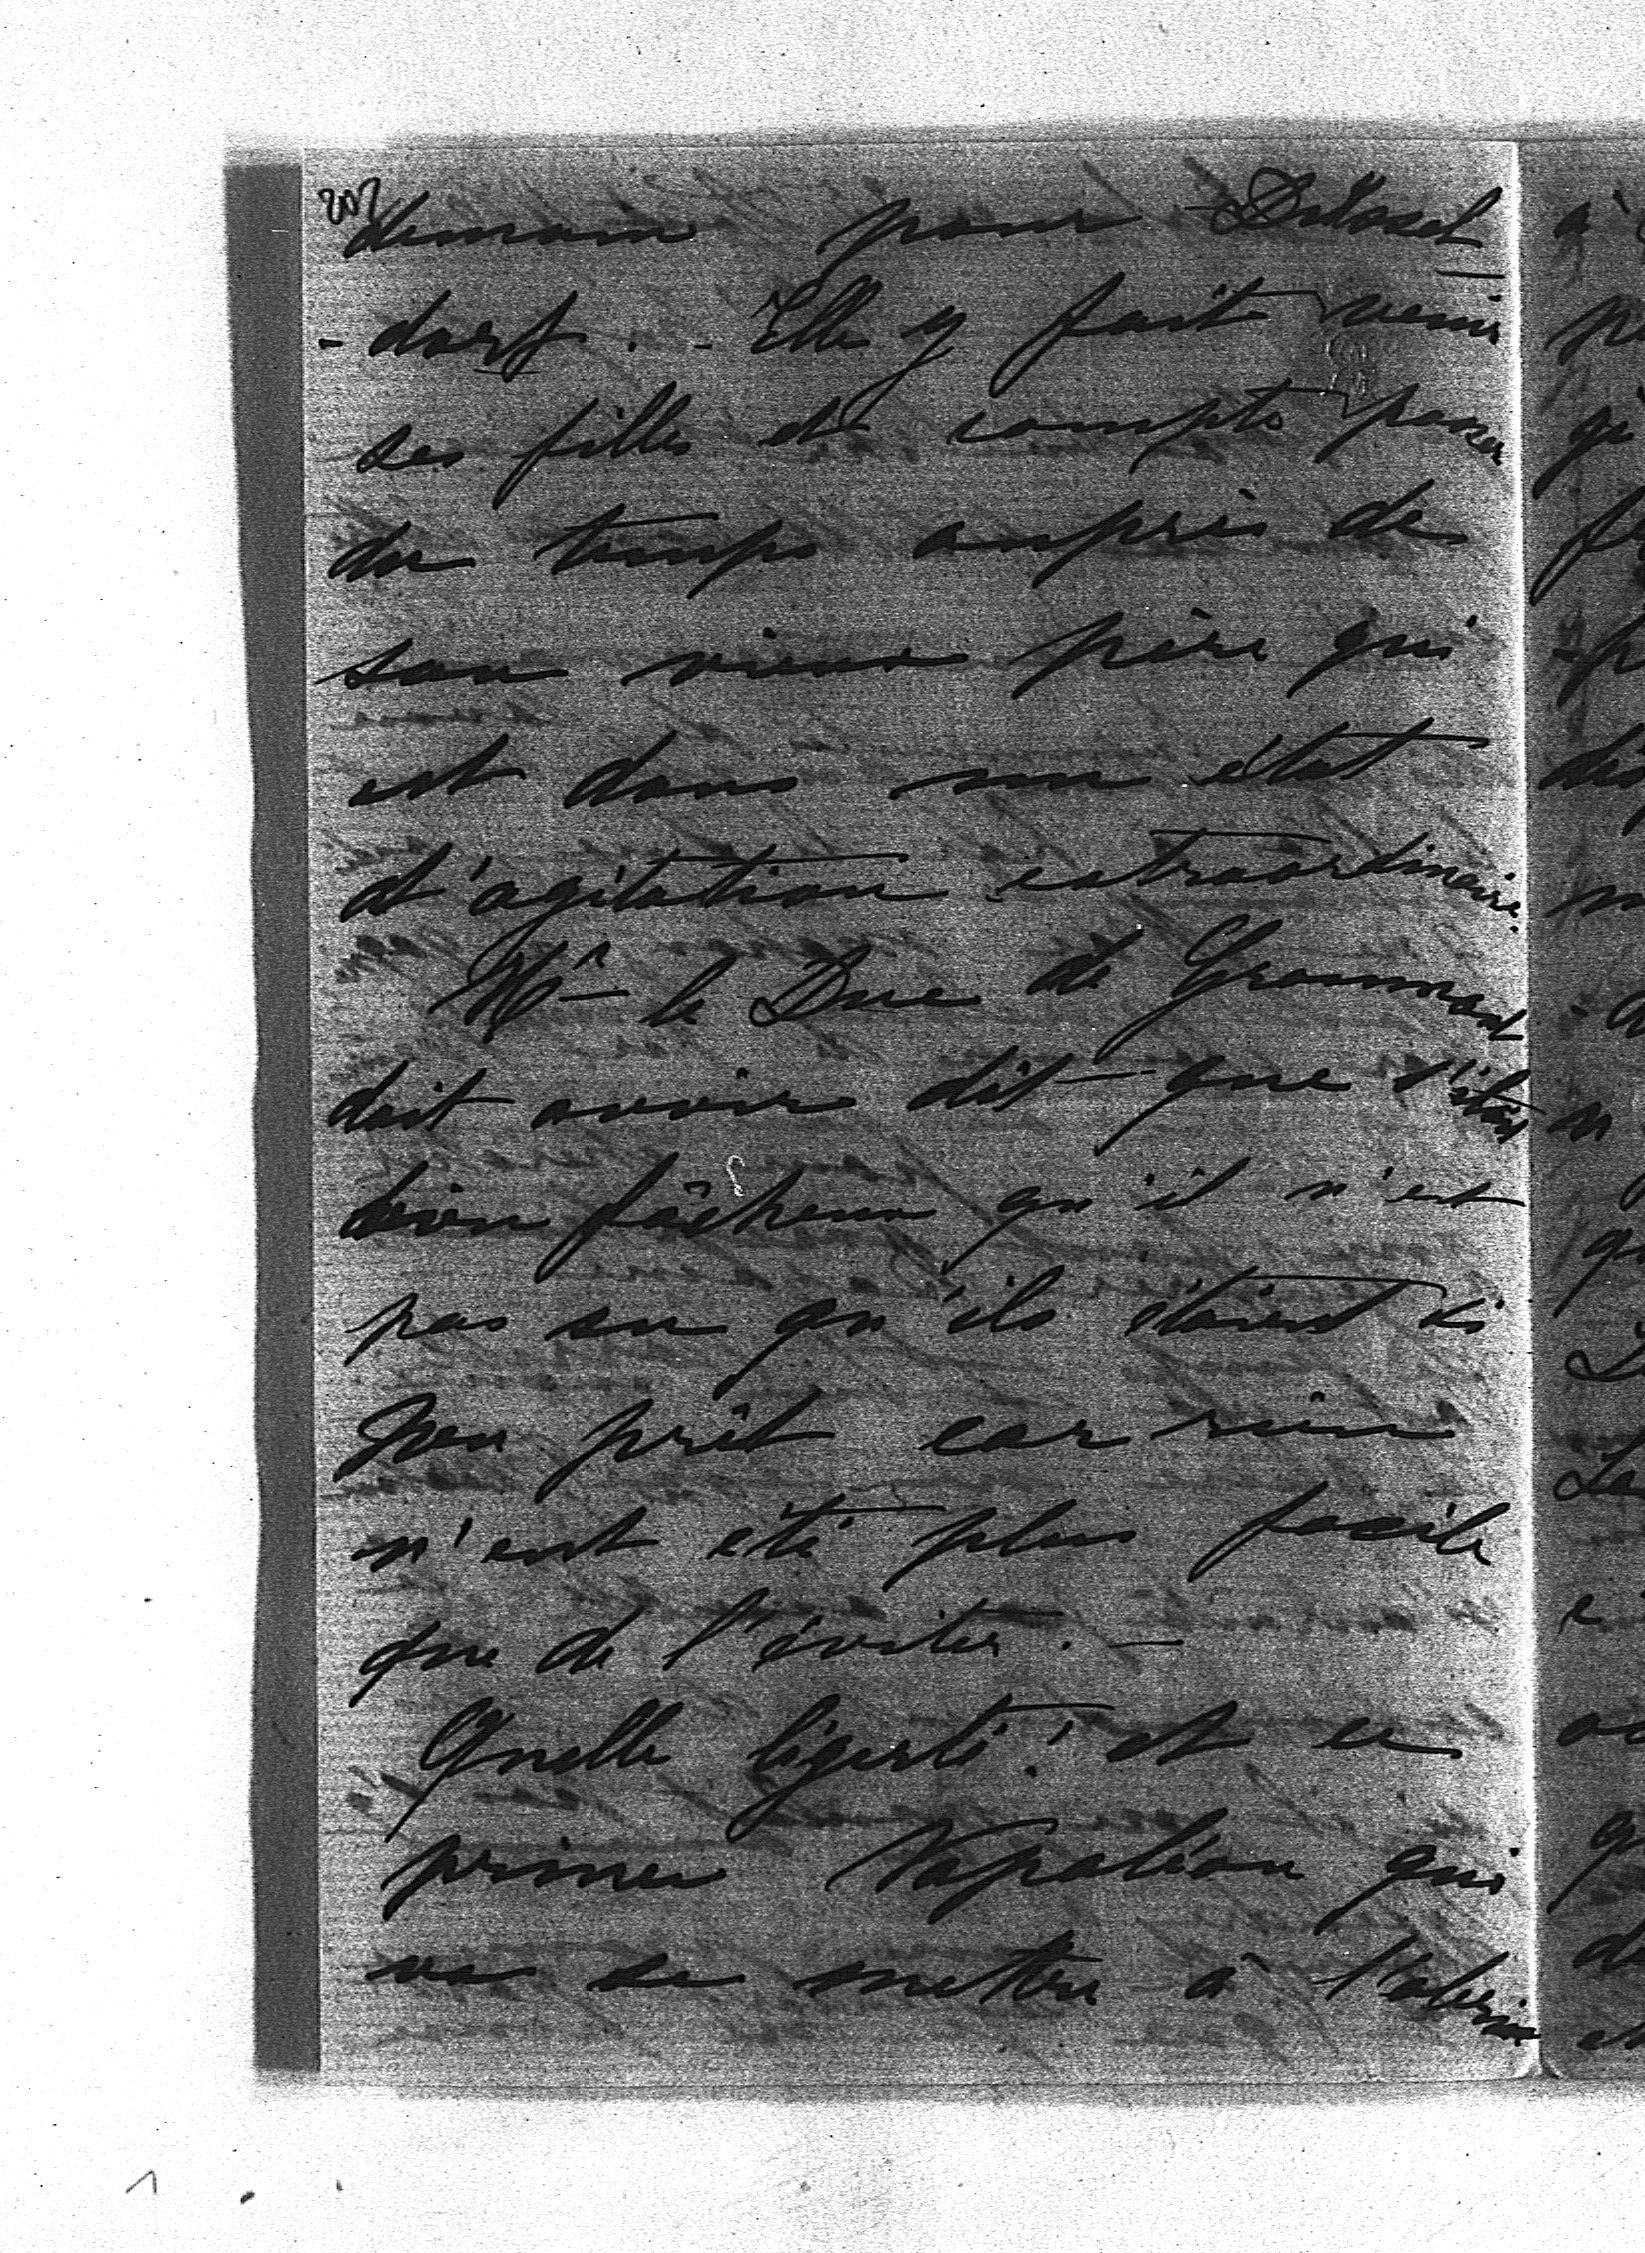 207
demain pour Düssel
- dorf. - Elle y fait venir
ses filles et compte passer
du temps auprès de
son vieux père qui
est dans un état
d'agitation extraordinaire.
Mr le Duc de Grammont
doit avoir dit que c'était
bien fâcheux qu'il n'eut
pas su qu'ils étaient si
peu prêt car rien
n'eut été plus facile
que de l'éviter. -
Quelle légerté! et ce
prince Napoléon qui
va se mettre à l'abri